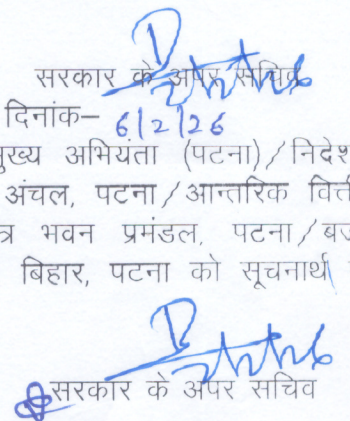 सरकार के अपर सचिव
दिनांक– 6/2/26
मुख्य अभियंता (पटना)/निदेश
अंचल, पटना/आन्तरिक वित्ती
त्र भवन प्रमंडल, पटना/बज
बिहार, पटना को सूचनार्थ
सरकार के अपर सचिव